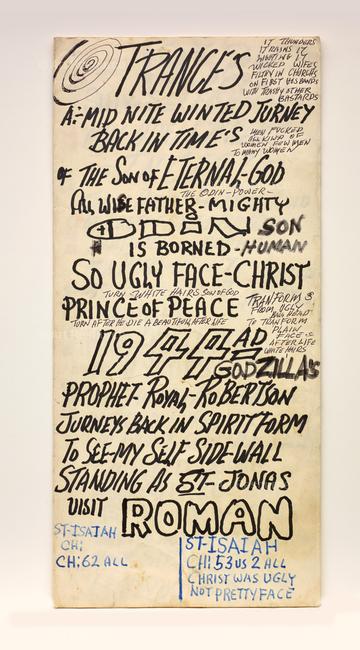 TRANCE'S
IT THUNDERS
IT RAINS IT
WICKED WIFES
FILTHY IN CHURCHS
ON FIRST HUSBANDS
WITH TRASHY OTHER
BASTARDS
A:-MID NITE WINTED JURNEY
BACK IN TIME'S
MEN FUCKED
ALL KIND OF
WOMEN FEW MEN
TO MANY WOMEN
OF THE SON OF ETERNAL-GOD
THE ODIN-POWER-
ALL WISE FATHER-MIGHTY
ODIN SON
IS BORNED-HUMAN
SO UGLY FACE-CHRIST
TURN WHITE HAIRS SON OF GOD
PRINCE OF PEACE
TRANFORM
FROM UGLY
TO TRANFORM
PLAIN
FACE
AFTER LIFE
WHITE HAIRS
TURN AFTER HE DIE A BEAUTIFUL AFTER LIFE
1944 AD
GODZILLA'S
PROPHET-ROYAL-ROBERTSON
JURNEYS BACK IN SPIRIT FORM
TO SEE-MY SELF SIDE-WALL
STANDING AS ST- JONAS
VISIT ROMAN
ST-ISAIAH
CH:
CH:62 ALL
ST-ISAIAH
CH:53 US 2 ALL
CHRIST WAS UGLY
NOT PRETTY FACE